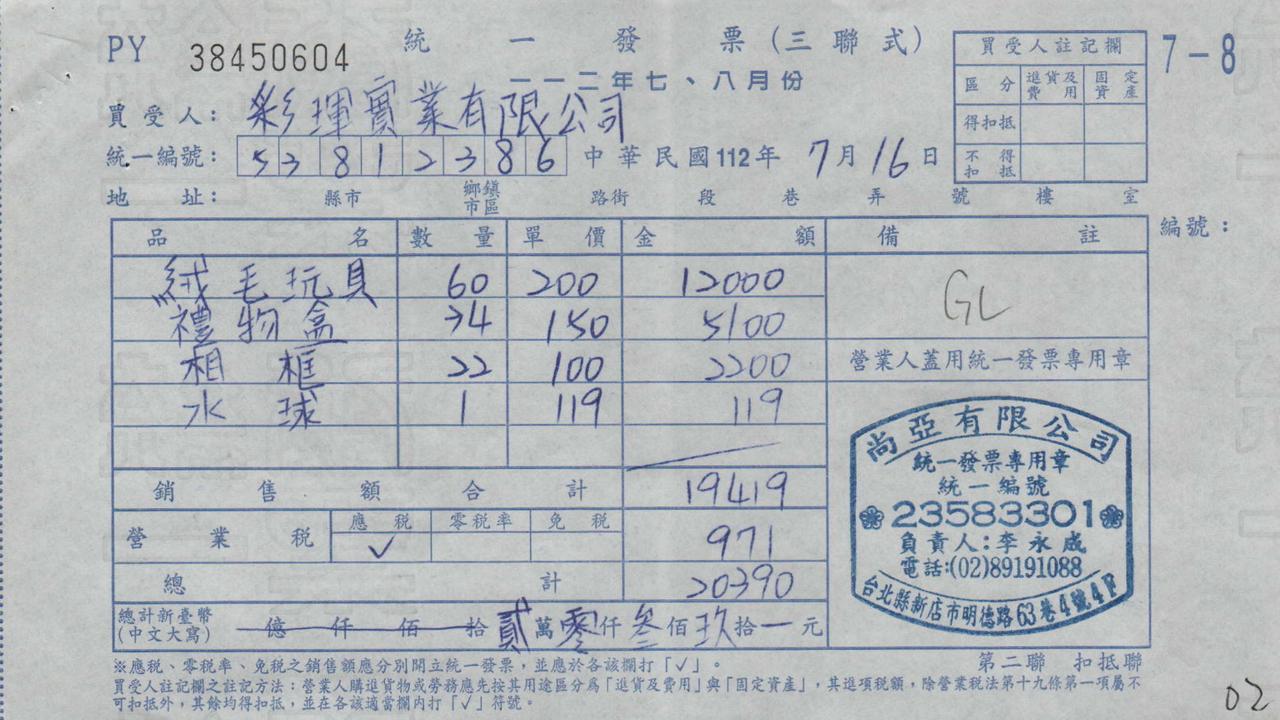 PY 38450604 統一發票(三聯式)
一一二年七、八月份
7-8
買受人註記欄
區分 進貨及費用 固定資產
得扣抵
不得扣抵
買受人: 彩琿實業有限公司
統一編號: 53812386 中華民國112年7月16日
地址: 縣市 鄉鎮市區 路街 段 巷 弄 號 樓 室
編號:
品名 數量 單價 金額 備註
絨毛玩具 60 200 12000
GL
禮物盒 34 150 5100
相框 22 100 2200
營業人蓋用統一發票專用章
水球 1 119 119
銷售額合計 19419
營業稅 應稅 零稅率 免稅
✓ 971
總計 20390
總計新臺幣(中文大寫) 億仟佰拾貳萬零仟叁佰玖拾一元
尚亞有限公司
統一發票專用章
統一編號
23583301
負責人:李永成
電話:(02)89191088
台北縣新店市明德路63巷4號4F
第二聯 扣抵聯
※應稅、零稅率、免稅之銷售額應分別開立統一發票,並應於各該欄打「✓」。
買受人註記欄之註記方法:營業人購進貨物或勞務應先按其用途區分為「進貨及費用」與「固定資產」,其進項稅額,除營業稅法第十九條第一項屬不
可扣抵外,其餘均得扣抵,並在各該適當欄內打「✓」符號。
02